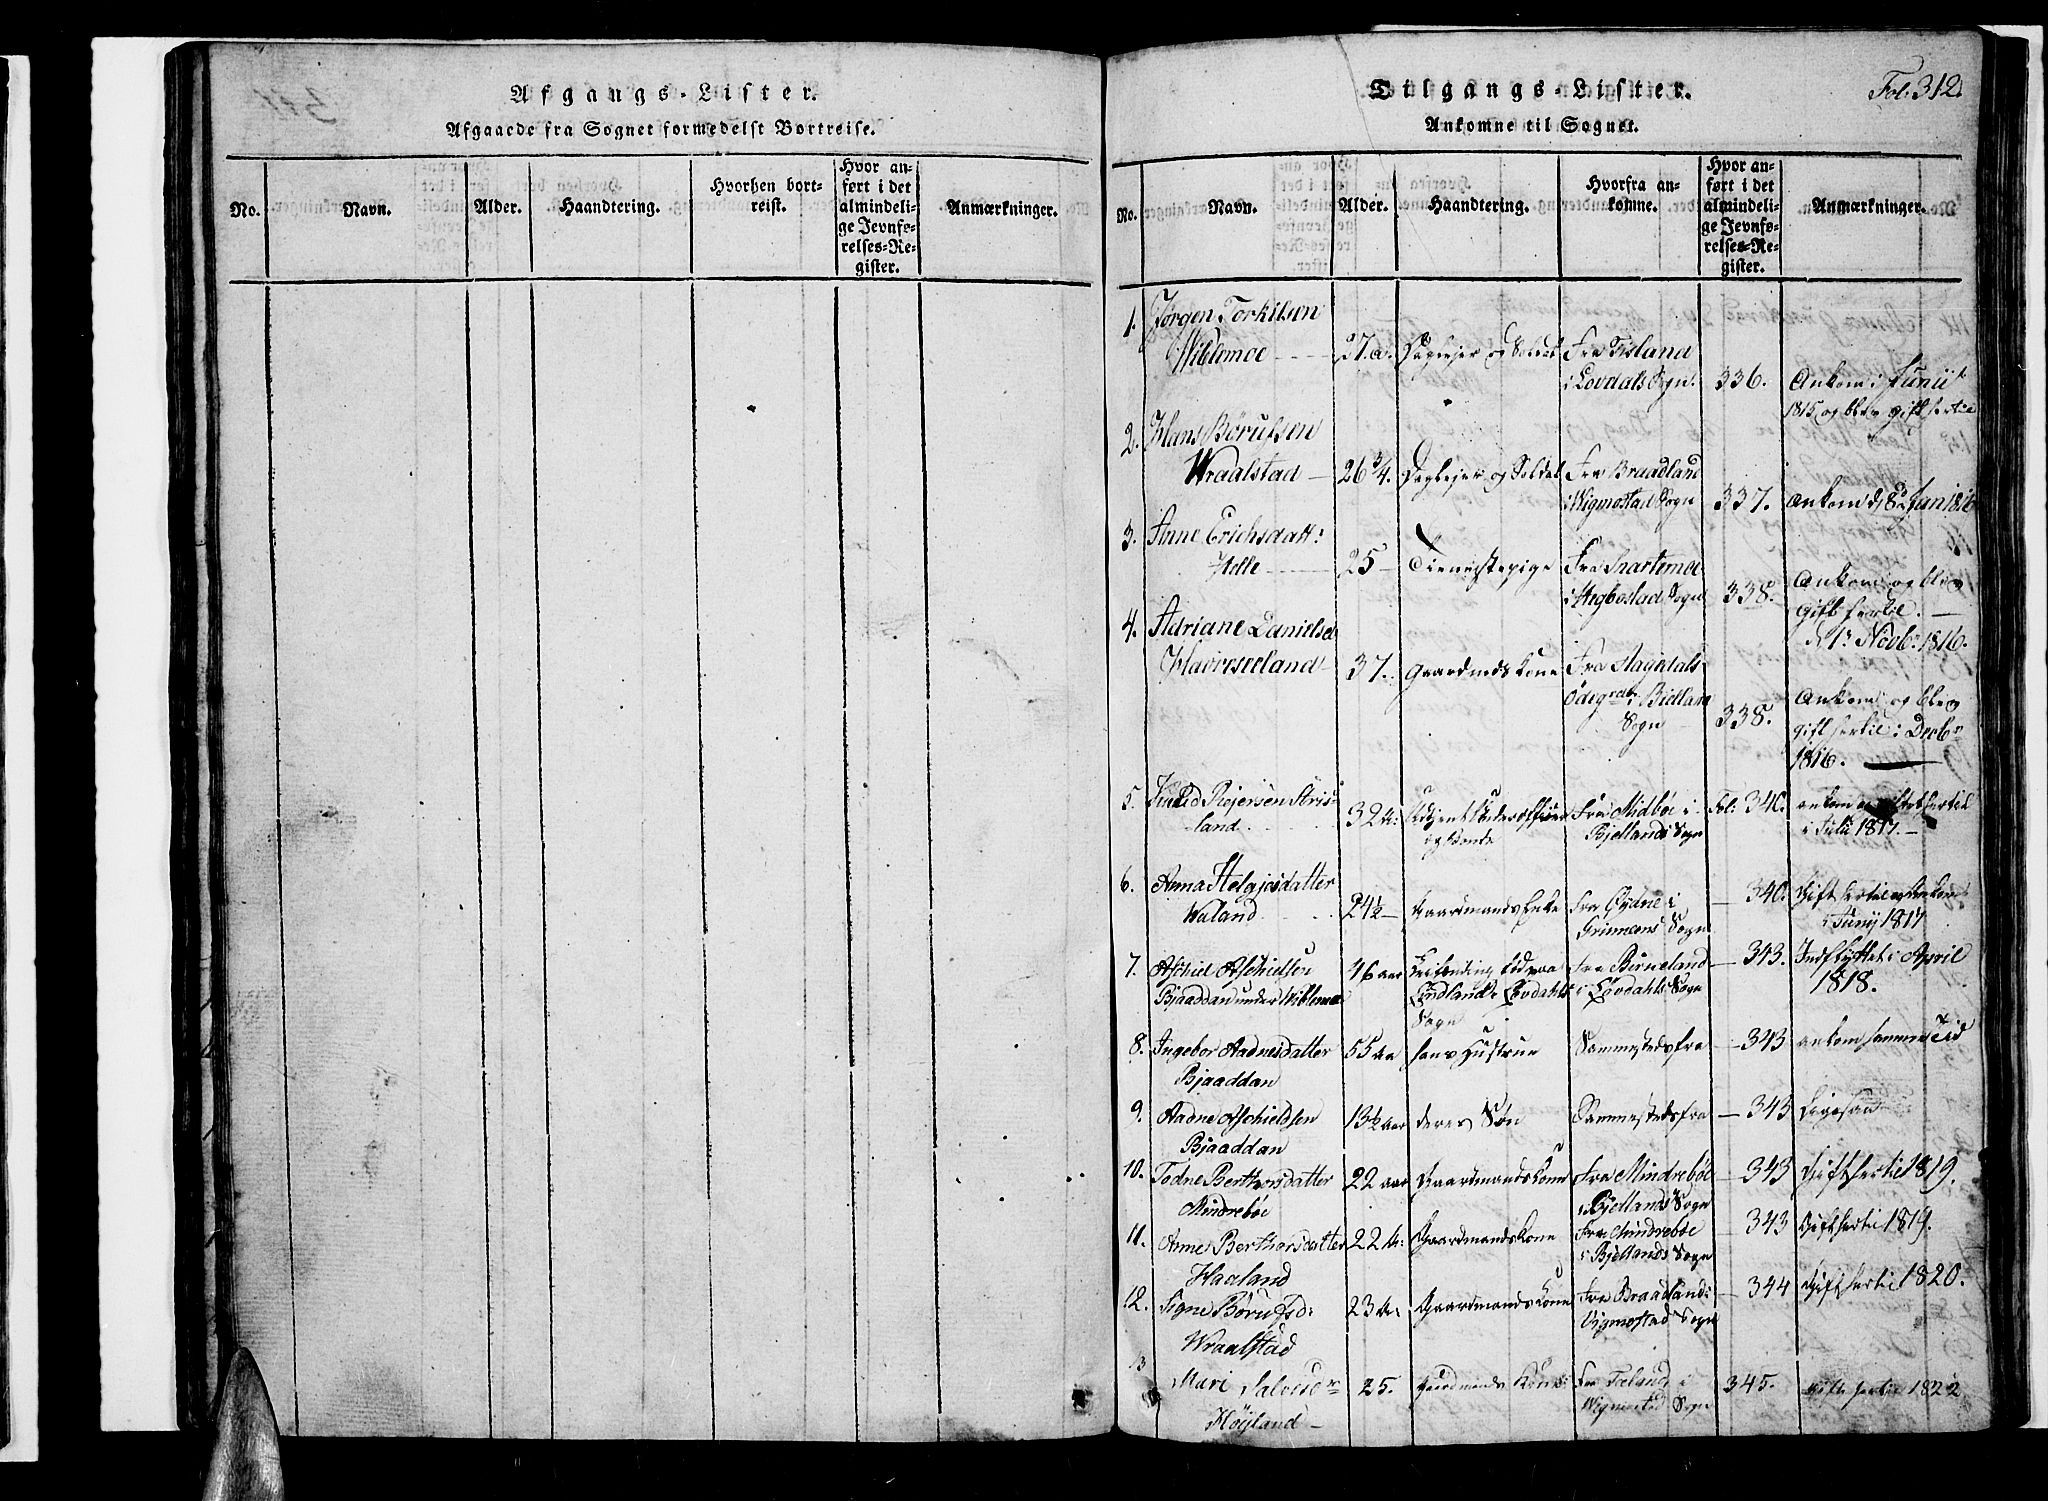 Afgangs-Lister.
Afgaaede fra Sognet formedelst Bortreise.
No.
Navn.
Alder.
Haandtering.
Hvorhen bort-
reist.
Hvor an-
ført i det
almindeli-
ge Jevnfø-
relses-Re-
gister.
Anmærkninger.
Tilgangs-Lister.
Fol. 312.
Ankomne til Sognet.
No.
Navn.
Alder.
Haandtering.
Hvorfra an-
komne.
Hvor an-
ført i det
almindeli-
ge Jevnfø-
relses-Re-
gister.
Anmærkninger.
1. Jørgen Torkilsen
Wiblemoe 27. a. Dagleier og Soldat Fra Tisland
i Lovdals Sogn. 336. Ankom i Junii
1815 og blev gift hertil
2. Hans Børufsen
Wraalstad 26 3/4. Dagleier og Soldat Fra Braadland
i Wigmostad Sogn 337. Ankom d. 8de Juni 1816
3. Anne Erichsdatt:
Helle 25 Tienistepige Fra Snartemoe
i Hegbostad Sogn 338. Ankom og blev
gift hertil.
d. 1. Novbr. 1816.
4. Adriane Danielsd
Haverseeland 37. Gaardmds Kone Fra
i Bidland
Sogn 338. Ankom og blev
gift hertil i Decbr
1816.
5. Reiersen Stris-
land. 32 A: Underofficer
og Bonde Fra Midbøe i
Bjellands Sogn Fol: 340. ankom og hertil
i Juli 1817.
6. Anna Helgjesdatter
Waland 24½ Gaardmands Enke Fra Øydne i
Sogn 340. Gift hertil og Ankom
i Juny 1817
7. Aschiel Aschielsen
Bjaaddan under Wiblemoe 46 aar
i Lovdahls
Sogn Fra Birneland
i Lovdahls Sogn 343. Indflyttet i April
1818.
8. Ingebor Aadnesdatter
Bjaaddan 55 aa hans Hustrue Sammestedsfra 343 ankom samme Tid
9. Aadne Aschieldsen
Bjaaddan 13½ aar deres Søn Sammestedsfra 343 Ligesaa
10. Todne Berthorsdatter
Mindrebøe 22 aar Gaardmands Kone Fra Mindrebøe
i Bjellands Sogn 343 Gift hertil 1819.
11. Anne Berthorsdatter
Haaland 22 A: Gaardmandskone Fra Mindrebøe
i Bjellands Sogn 343 Gift hertil 1819.
12. Signe Børufsd:
Wraalstad 23 A: Gaardmands Kone Fra Braadland i
Vigmostad Sogn 344 Gift hertil 1820.
13 Mari Salvesdr
Höyland 25. Gaardmands Kone Fra i
Wigmostad Sogn 345. Gift hertil 1822